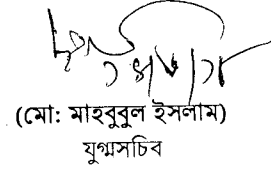 (মো: মাহবুবুল ইসলাম)
যুগ্মসচিব